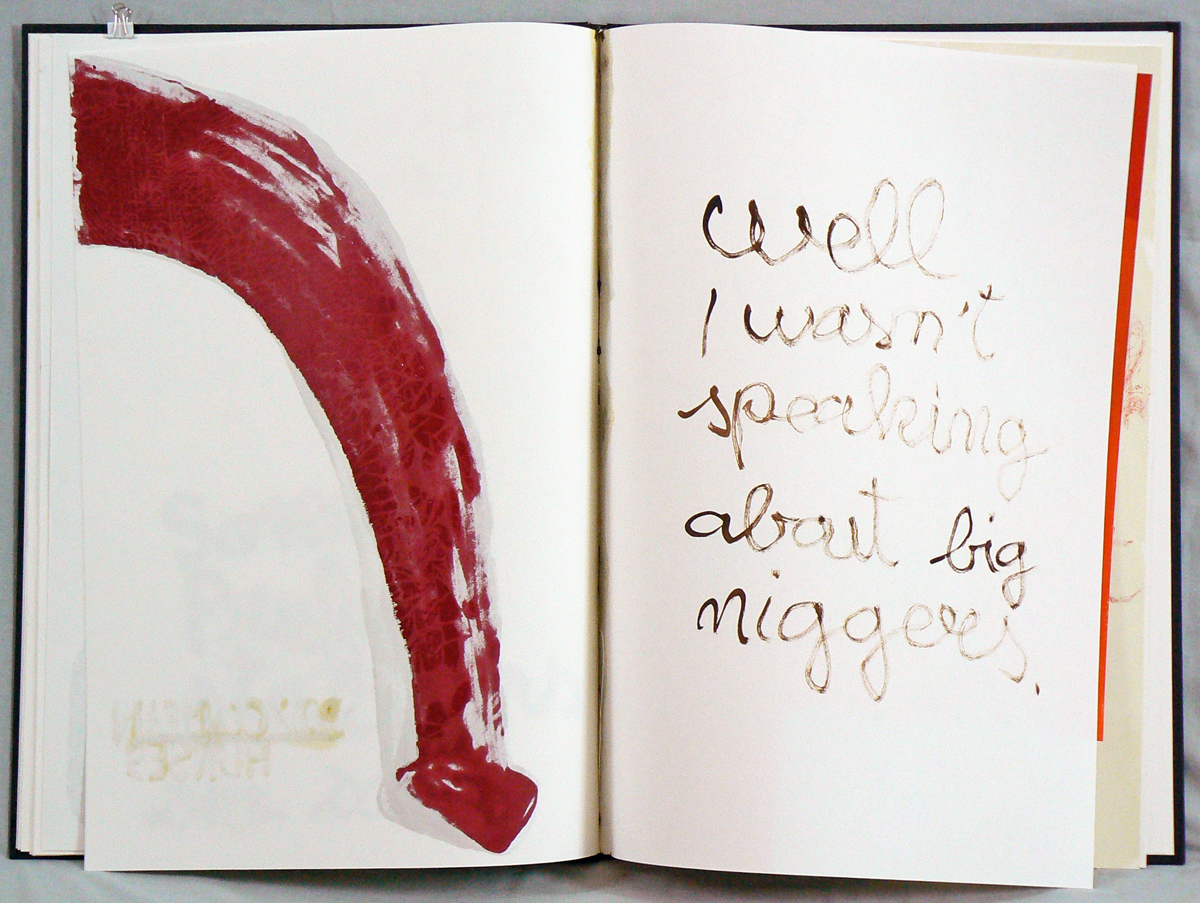 Well
I wasn't
speaking
about big
niggers.